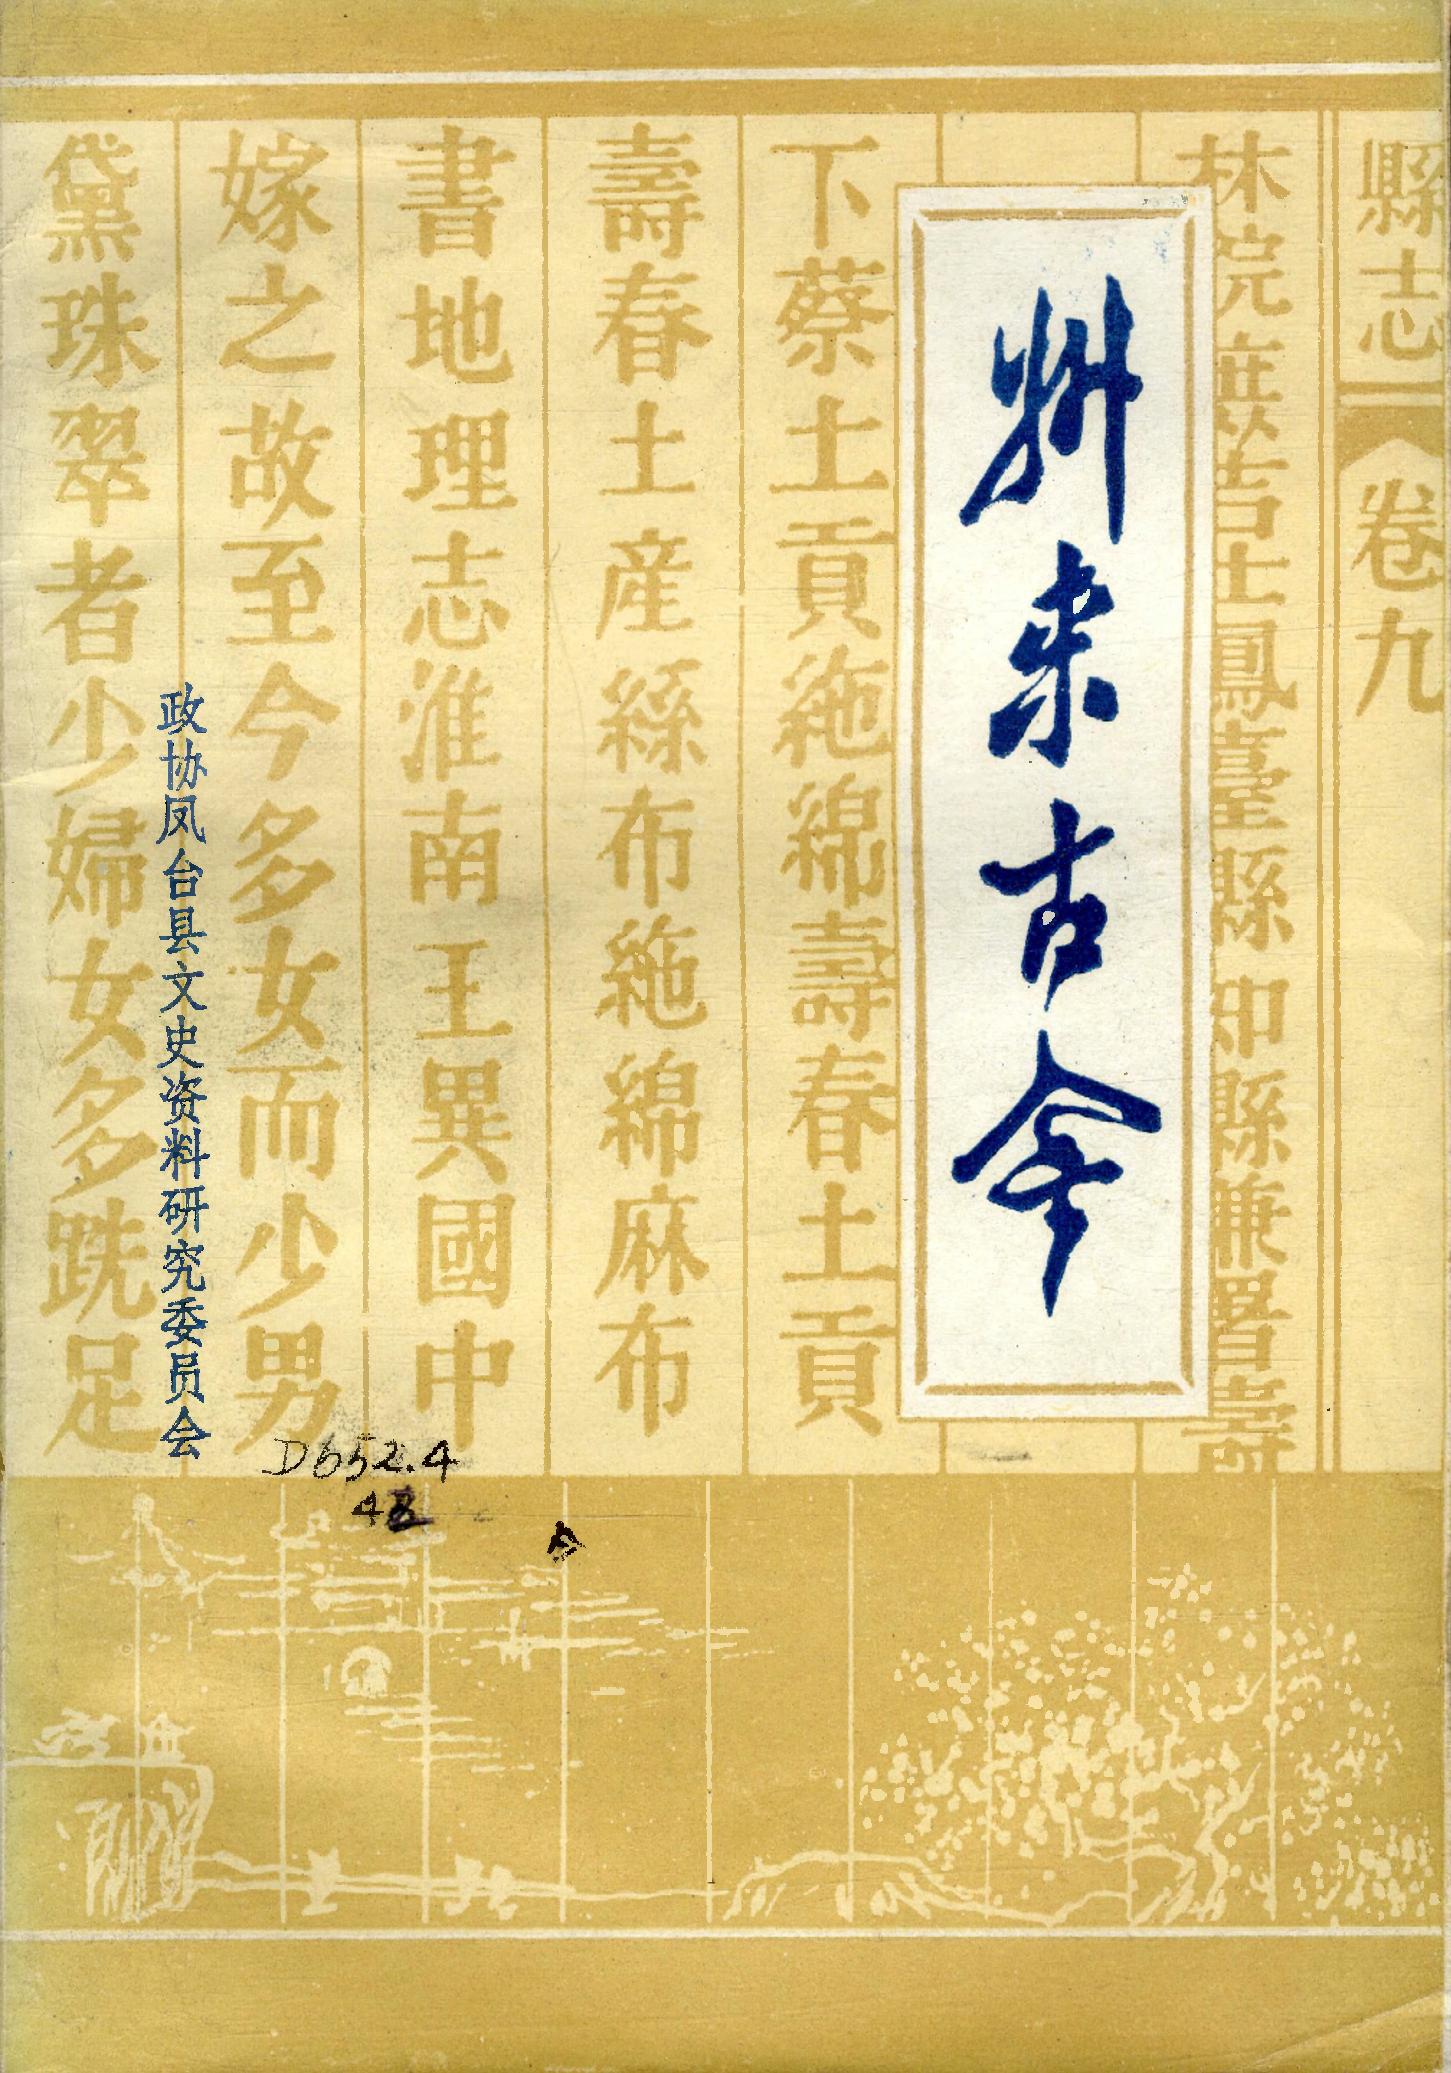 縣志
卷九
林院庶吉士鳳臺縣知縣兼署壽
州来古今
下蔡土貢絁綿壽春土貢
壽春土産絲布絁綿麻布
書地理志淮南王異國中
嫁之故至今多女而少男
黛珠翠者少婦女多跣足
政协凤台县文史资料研究委员会
D652.4
48